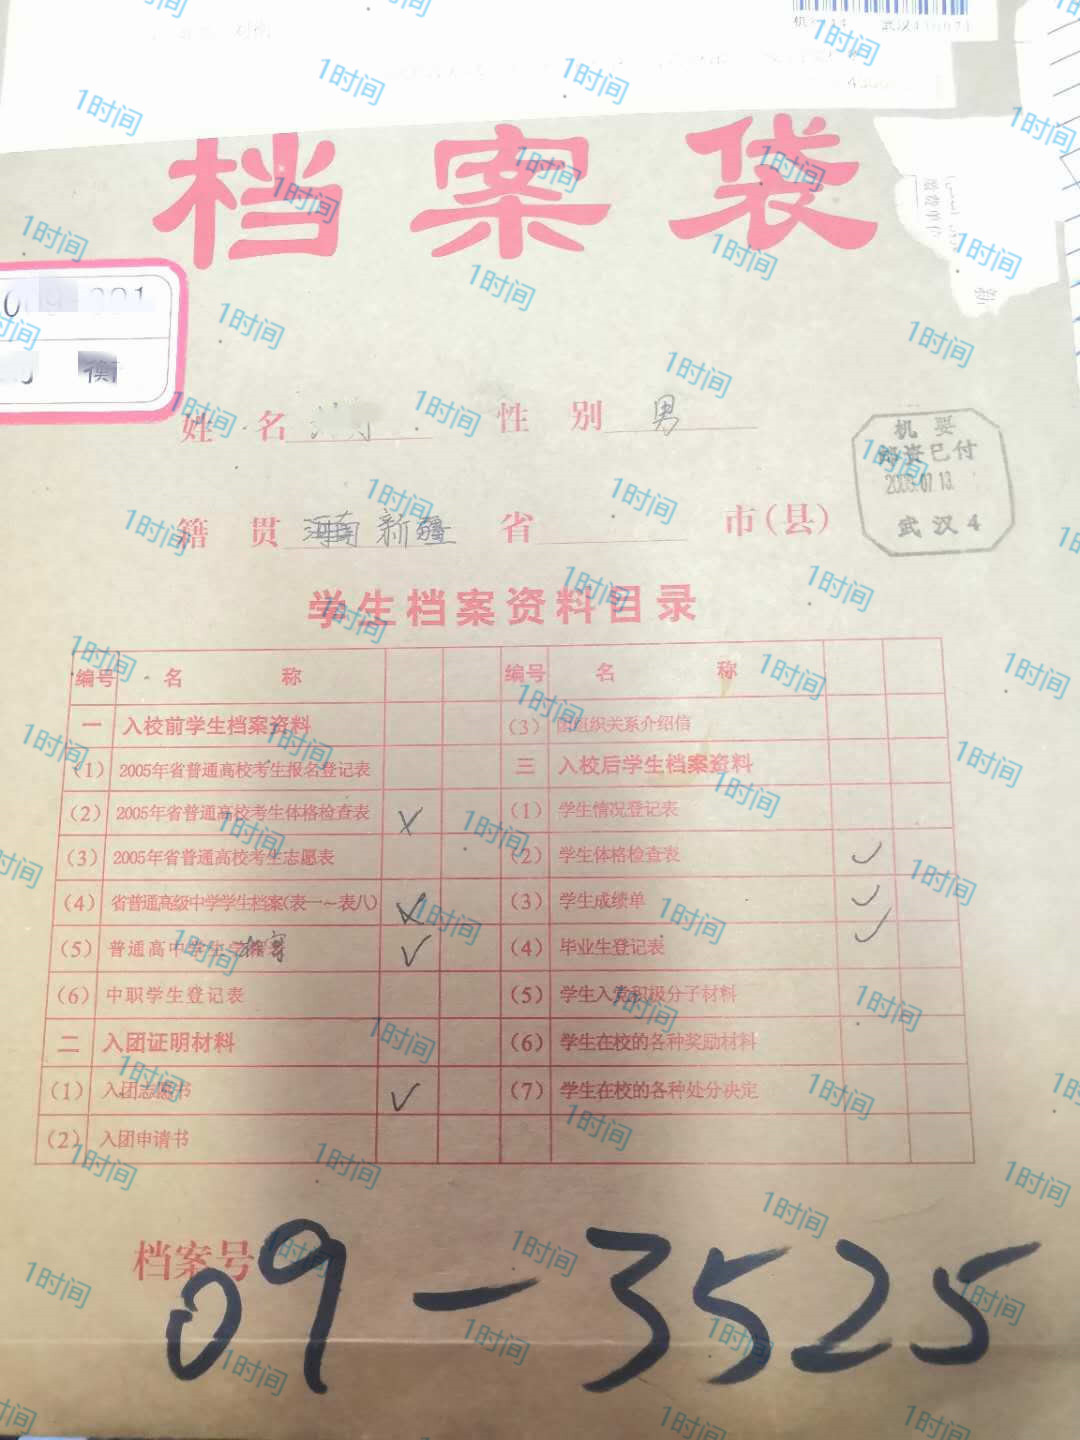 档案袋
衡
姓 名
性 别 男
机 要
邮资已付
武 汉 4
籍 贯 河南 新疆 省 市(县)
学生档案资料目录
编号 名 称
一 入校前学生档案资料
(1) 2005年省普通高校考生报名登记表
(2) 2005年省普通高校考生体格检查表 ×
(3) 2005年省普通高校考生志愿表
(4) 省普通高级中学学生档案(表一~表八)
(5) 普通高中学生学籍 ✓
(6) 中职学生登记表
二 入团证明材料
(1) 入团志愿书 ✓
(2) 入团申请书
编号 名 称
(3) 团组织关系介绍信
三 入校后学生档案资料
(1) 学生情况登记表
(2) 学生体格检查表 ✓
(3) 学生成绩单 ✓
(4) 毕业生登记表 ✓
(5) 学生入党积极分子材料
(6) 学生在校的各种奖励材料
(7) 学生在校的各种处分决定
档案号 09-3525
1时间